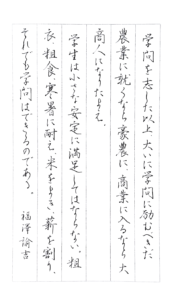 学問を志した以上 大いに学問に励むべきだ
農業に就くなら豪農に、商業に入るなら大
商人になりたまえ。
学生は小さな安定に満足してはならない。粗
衣粗食、寒暑に耐え、米をまき、薪を割り、
それでも学問はできるのである。
福澤諭吉